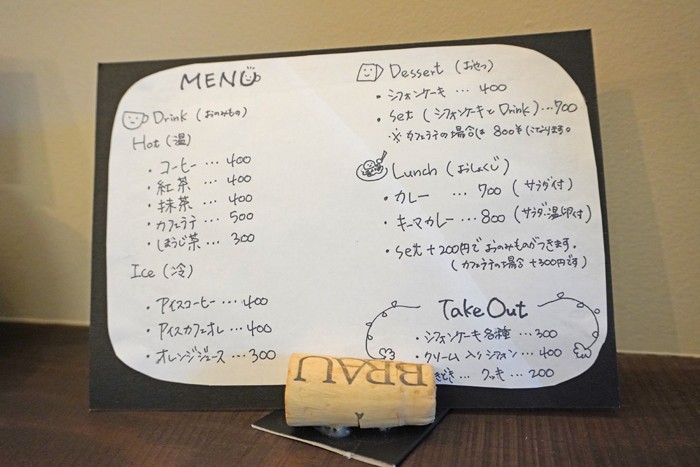 MENU
Drink (おのみもの)
Hot (温)
・コーヒー … 400
・紅茶 … 400
・抹茶 … 400
・カフェラテ … 500
・ほうじ茶 … 300
Ice (冷)
・アイスコーヒー … 400
・アイスカフェオレ … 400
・オレンジジュース … 300
Dessert (おやつ)
・シフォンケーキ … 400
・set (シフォンケーキと Drink) … 700
※ カフェラテの場合は 800¥になります。
Lunch (おしょくじ)
・カレー … 700 (サラダ付)
・キーマカレー … 800 (サラダ・温卵付)
・set +200円で おのみものがつきます。
(カフェラテの場合 +300円です)
Take Out
・シフォンケーキ各種 … 300
・クリーム入りシフォン … 400
ときどき … クッキー 200
BRAU